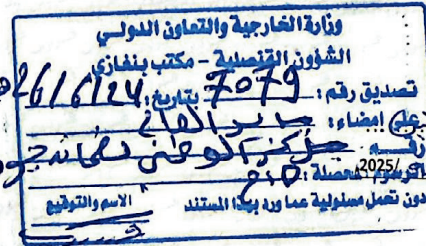 وزارة الخارجية والتعاون الدولي
الشؤون القنصلية - مكتب بنغازي
تصديق رقم: 7079 بتاريخ: 26/6/24
على امضاء:
المركز الوطني لضمان جو
2025/
الرسوم المحصلة:
دون تحمل مسئولية عما ورد بهذا المستند
الاسم والتوقيع